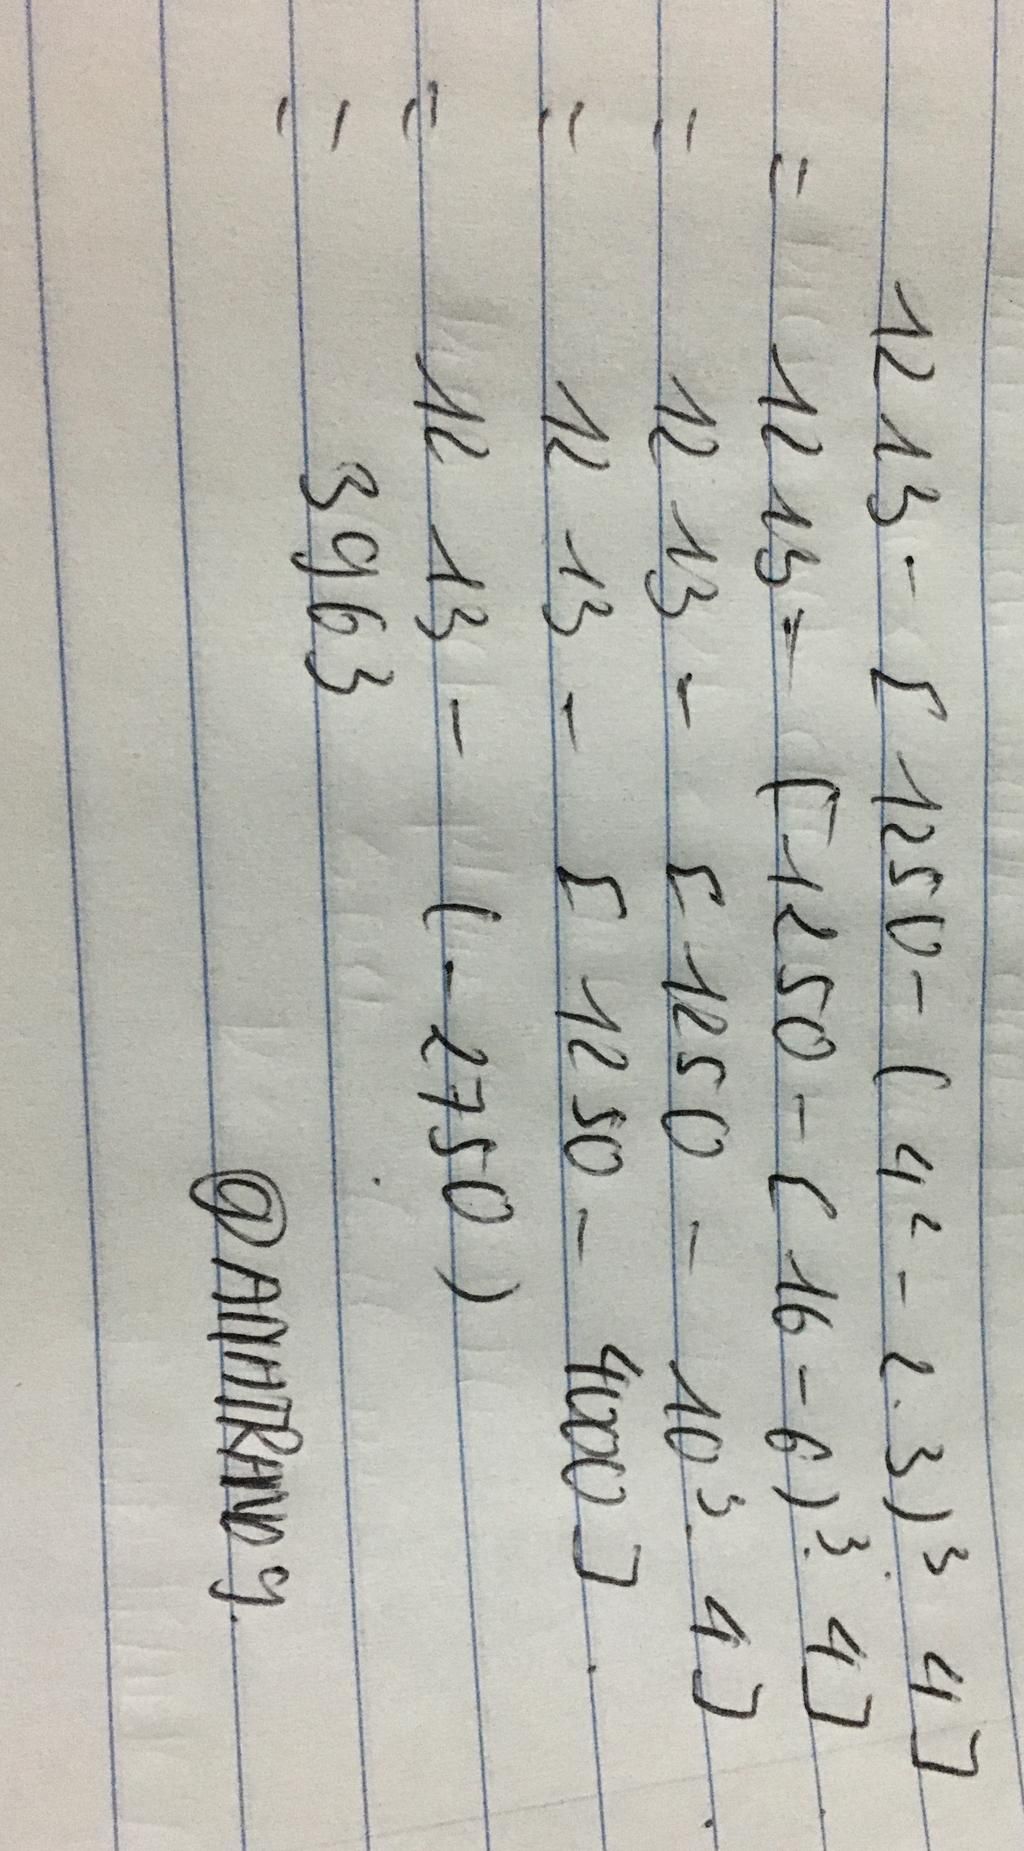 1213 - [1250 - (4² - 2.3)³. 4]
= 1213 - [1250 - (16 - 6)³. 4]
= 1213 - [1250 - 10³. 4]
= 1213 - [1250 - 4000]
= 1213 - (-2750)
= 3963